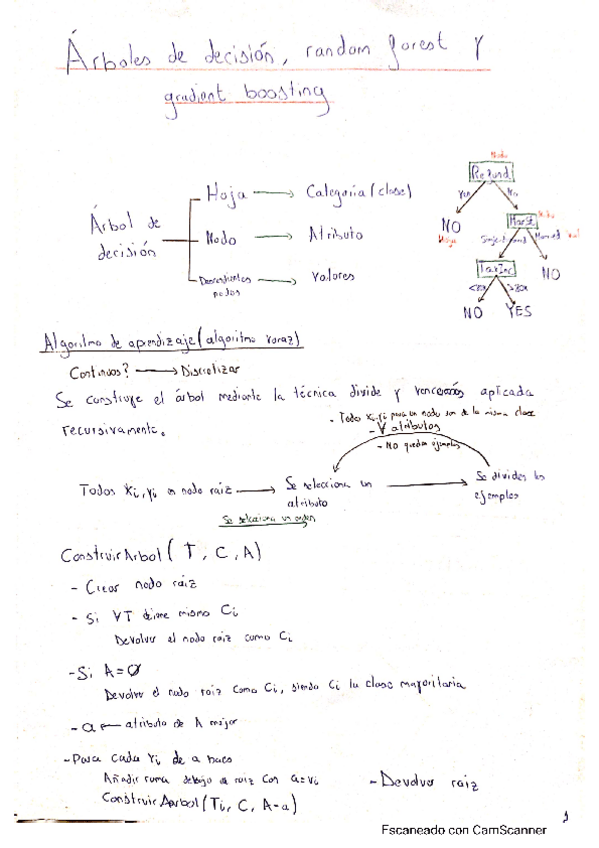 Árboles de decisión, random forest y
gradient boosting
Árbol de
decisión
Hoja → Categoría (clase)
Nodo → Atributo
Descendientes
nodos → Valores
Nodo
Refund
Yes
No
NO
Hoja
MarSt
Nodo
Married
TaxInc
NO
<80K
>80K
NO YES
Algoritmo de aprendizaje (algoritmo voraz)
Continuos? → Discretizar
Se construye el árbol mediante la técnica divide y vencerás aplicada
recursivamente.
- Todo xi,yi para un nodo son de la misma clase
- ∀ atributos
- NO quedan ejemplos
Todos xi,yi en nodo raiz → Se selecciona un
atributo
Se selecciona un orden
→ Se dividen los
ejemplos
ConstruirArbol (T, C, A)
- Crear nodo raiz
- Si ∀T tiene mismo Ci
Devolver el nodo raiz como Ci
- Si A=∅
Devolver el nodo raiz como Ci, siendo Ci la clase mayoritaria
- a ← atributo de A mejor
- Para cada vi de a hacer
Añadir rama debajo de raiz con a=vi
ConstruirAarbol (Ti, C, A-a)
- Devolver raiz
1
Escaneado con CamScanner